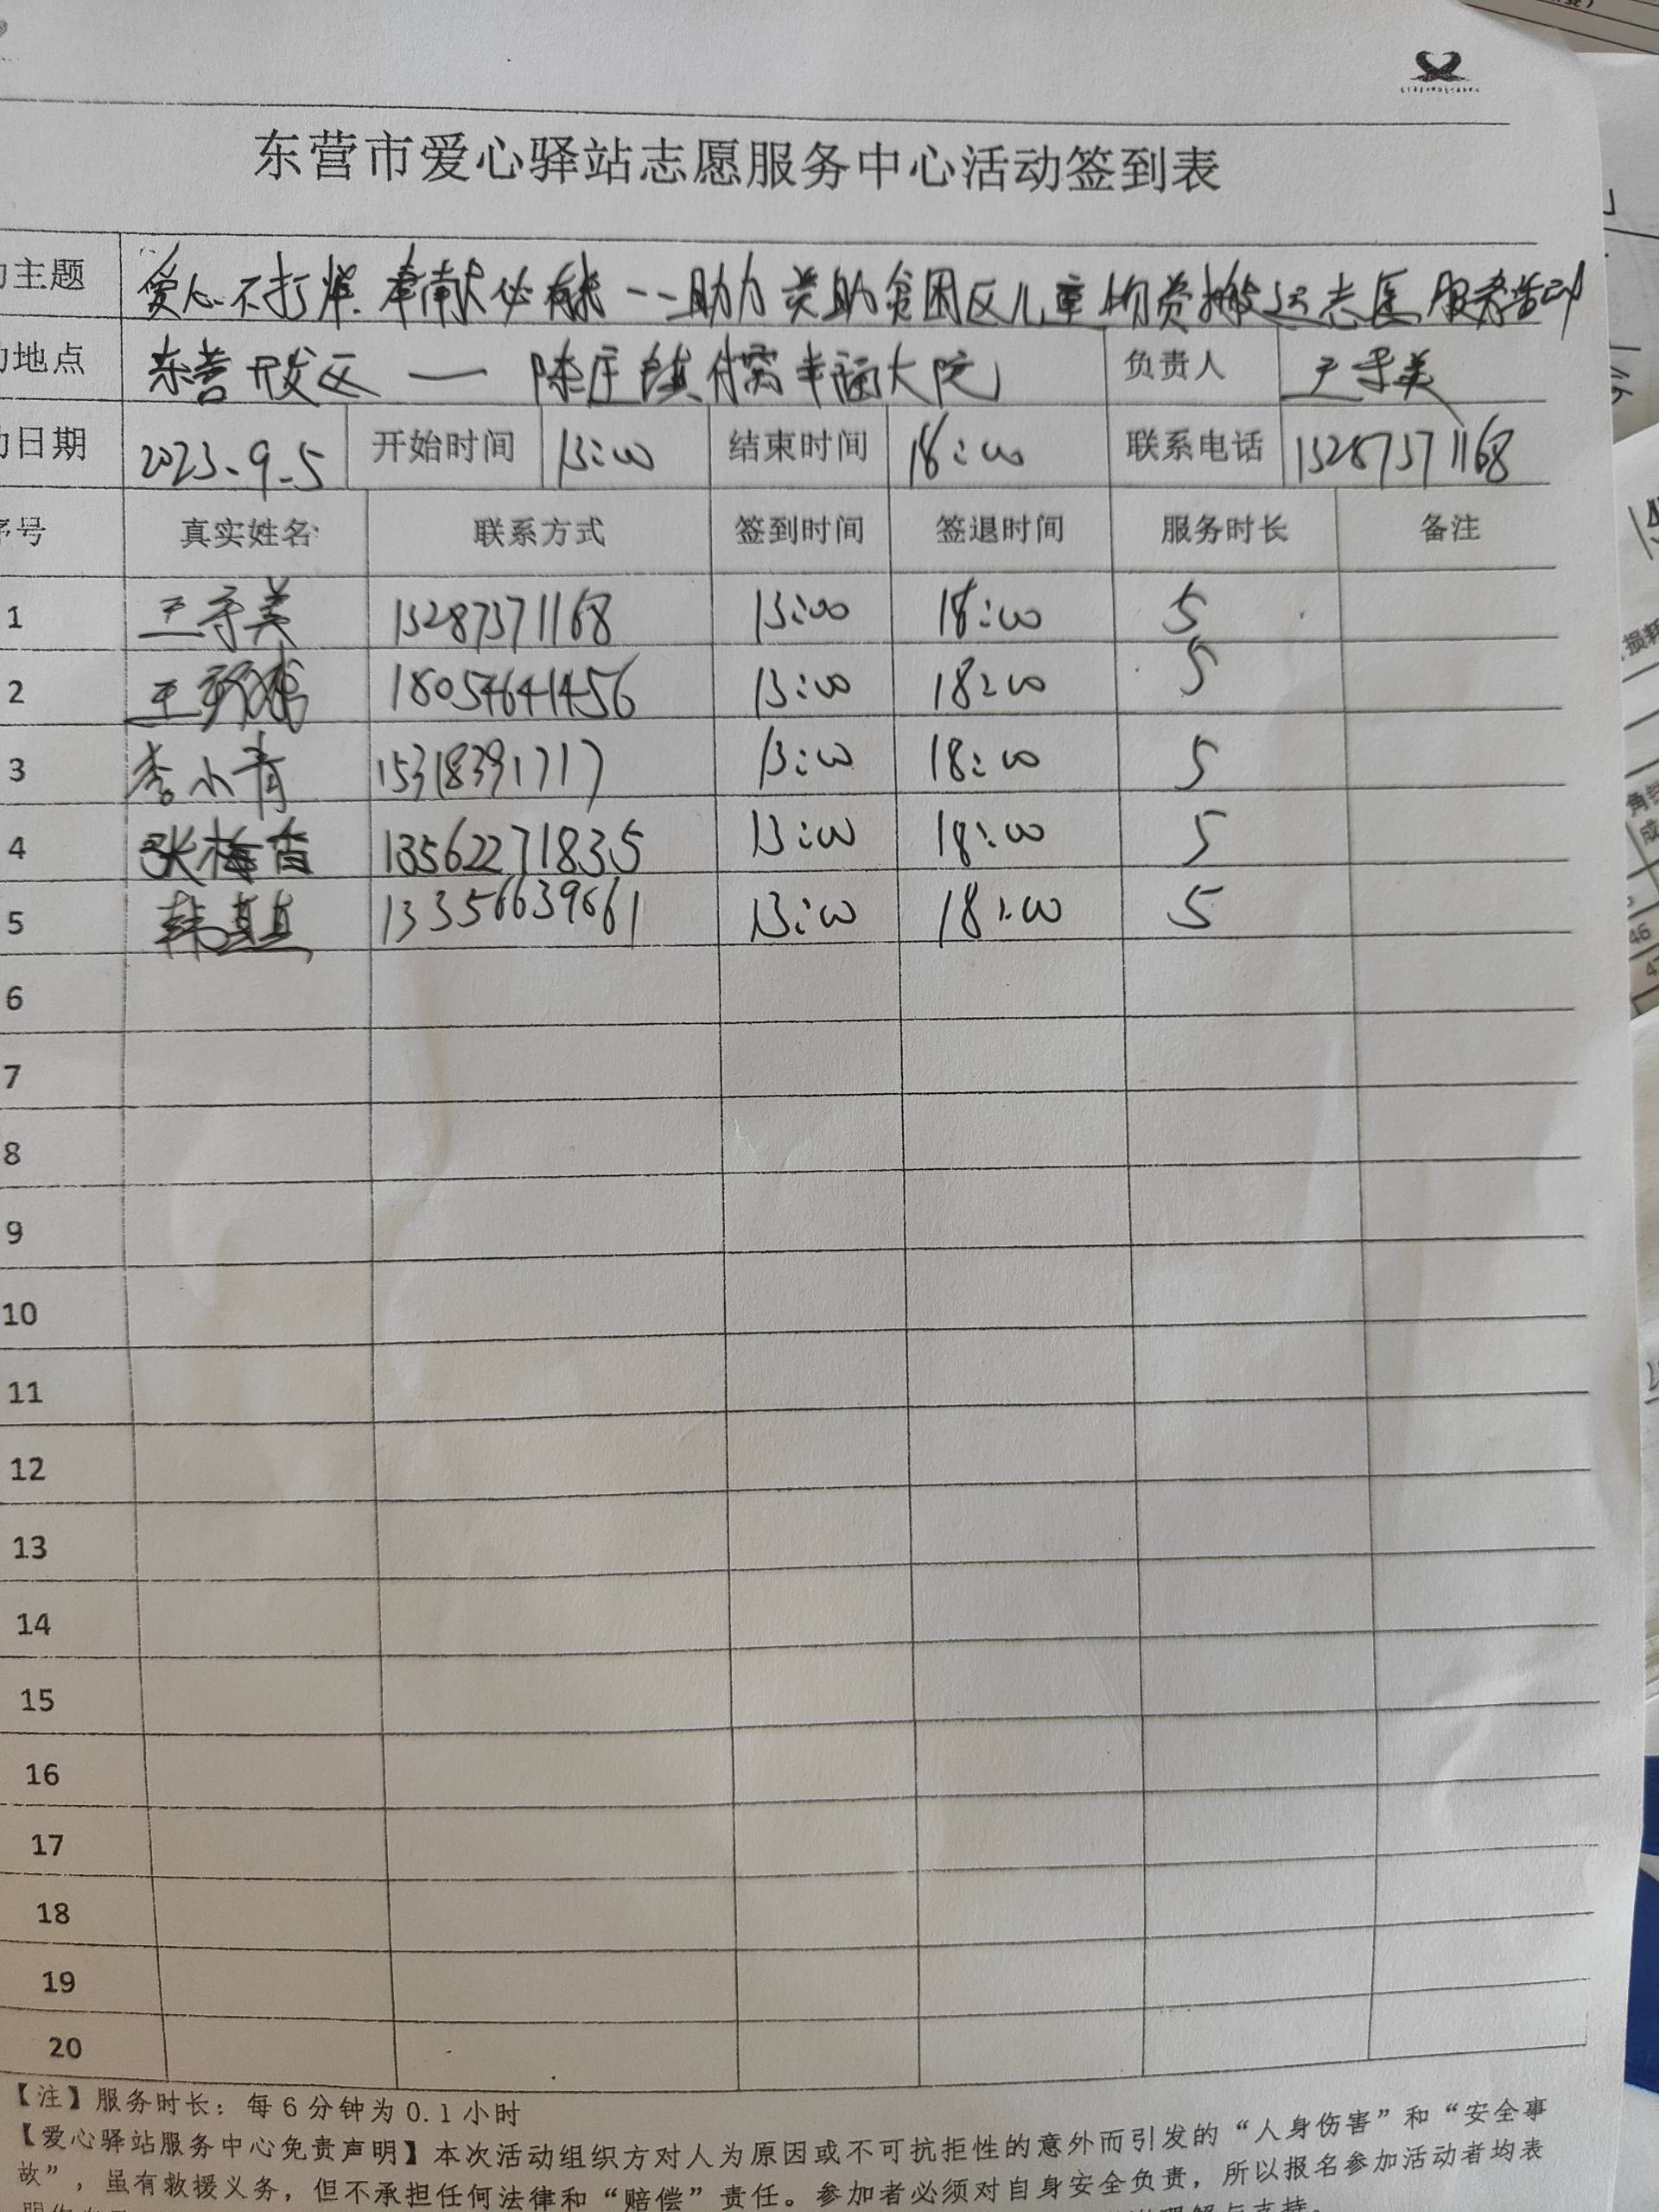 东营市爱心驿站志愿服务中心活动签到表
主题 爱心不打烊 奉献必有我 --助力资助贫困区儿童物资搬运志愿服务活动
地点 东营开发区 — 陈庄镇付窝幸福大院 负责人 王守美
日期 2023.9.5 开始时间 13:00 结束时间 18:00 联系电话 13287371168
序号 真实姓名 联系方式 签到时间 签退时间 服务时长 备注
1 王守美 13287371168 13:00 18:00 5
2 王 18054641456 13:00 18:00 5
3 李小青 15318391717 13:00 18:00 5
4 张梅香 13562271835 13:00 18:00 5
5 韩 13356639661 13:00 18:00 5
6
7
8
9
10
11
12
13
14
15
16
17
18
19
20
【注】服务时长：每6分钟为0.1小时
【爱心驿站服务中心免责声明】本次活动组织方对人为原因或不可抗拒性的意外而引发的“人身伤害”和“安全事
故”，虽有救援义务，但不承担任何法律和“赔偿”责任。参加者必须对自身安全负责，所以报名参加活动者均表
理解与支持。